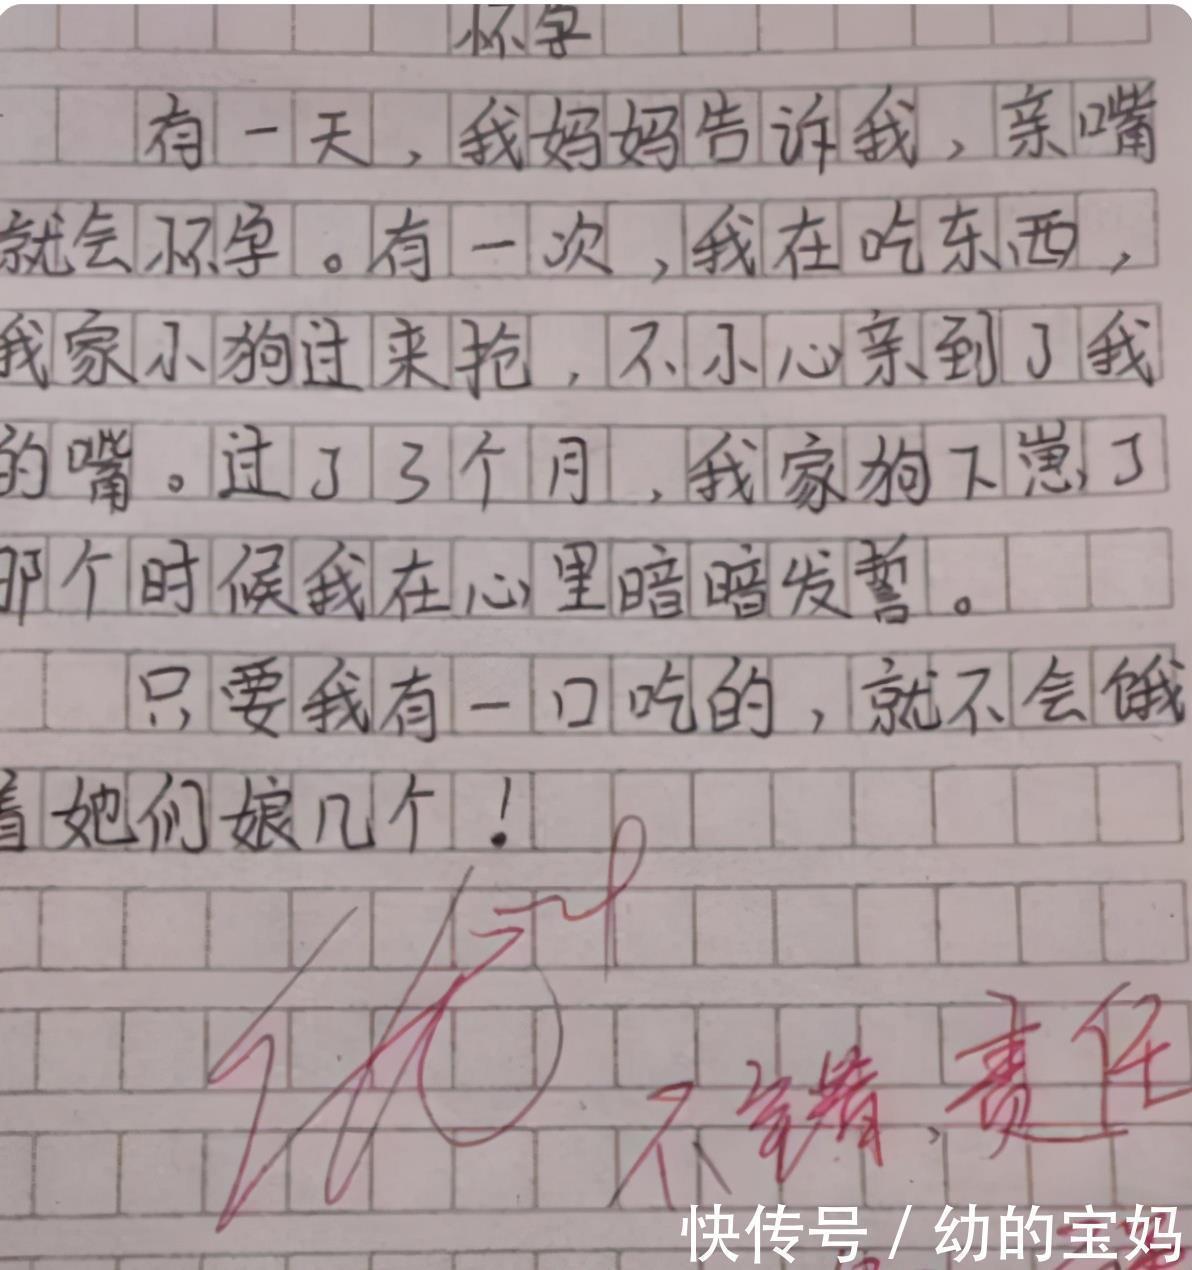 怀孕
有一天，我妈妈告诉我，亲嘴
就会怀孕。有一次，我在吃东西，
我家小狗过来抢，不小心亲到了我
的嘴。过了3个月，我家狗下崽了
那个时候我在心里暗暗发誓。
只要我有一口吃的，就不会饿
着她们娘几个！
不错，责任
快传号/幼的宝妈